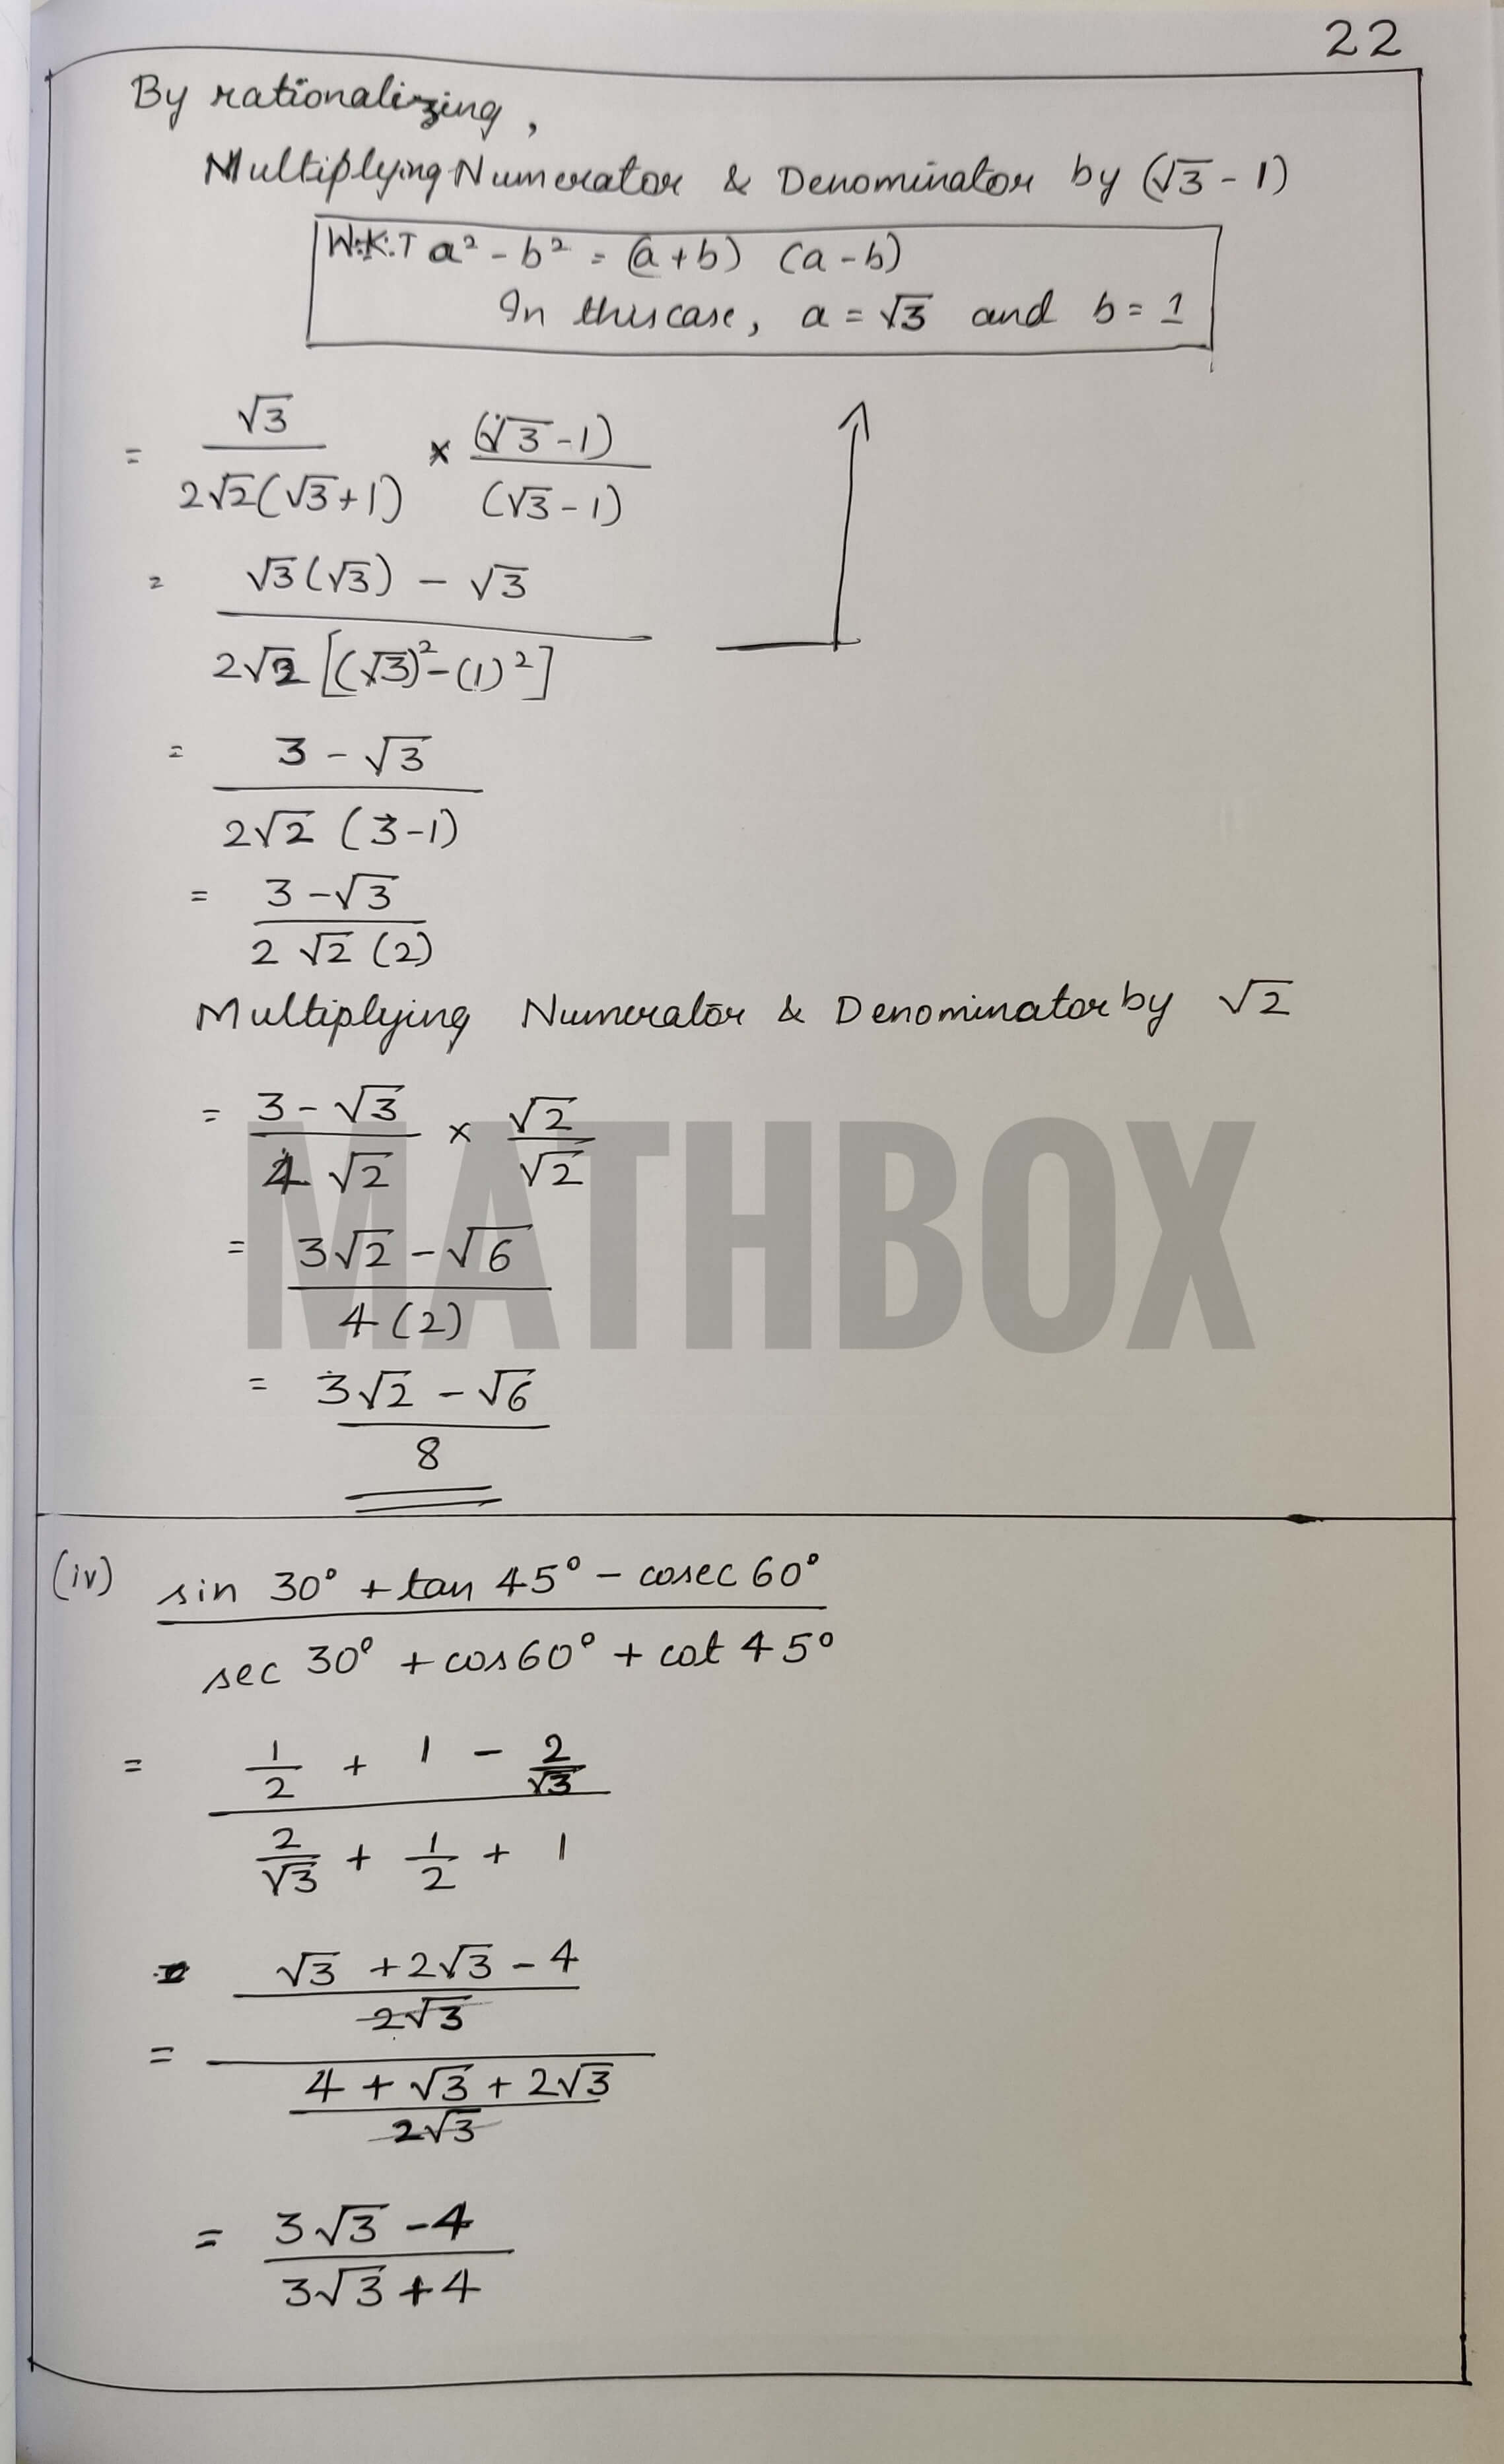 22
By rationalizing,
Multiplying Numerator & Denominator by (√3 - 1)
W.K.T a² - b² = (a+b) (a-b)
In this case, a = √3 and b = 1
= √3 / 2√2(√3+1) × (√3-1) / (√3-1)
= √3(√3) - √3 / 2√2 [(√3)²-(1)²]
= 3 - √3 / 2√2 (3-1)
= 3 - √3 / 2 √2 (2)
Multiplying Numerator & Denominator by √2
= 3 - √3 / 4 √2 × √2 / √2
= 3√2 - √6 / 4(2)
= 3√2 - √6 / 8
MATHBOX
(iv) sin 30° + tan 45° - cosec 60° / sec 30° + cos 60° + cot 45°
= 1/2 + 1 - 2/√3 / 2/√3 + 1/2 + 1
= √3 + 2√3 - 4 / 2√3 / 4 + √3 + 2√3 / 2√3
= 3√3 - 4 / 3√3 + 4